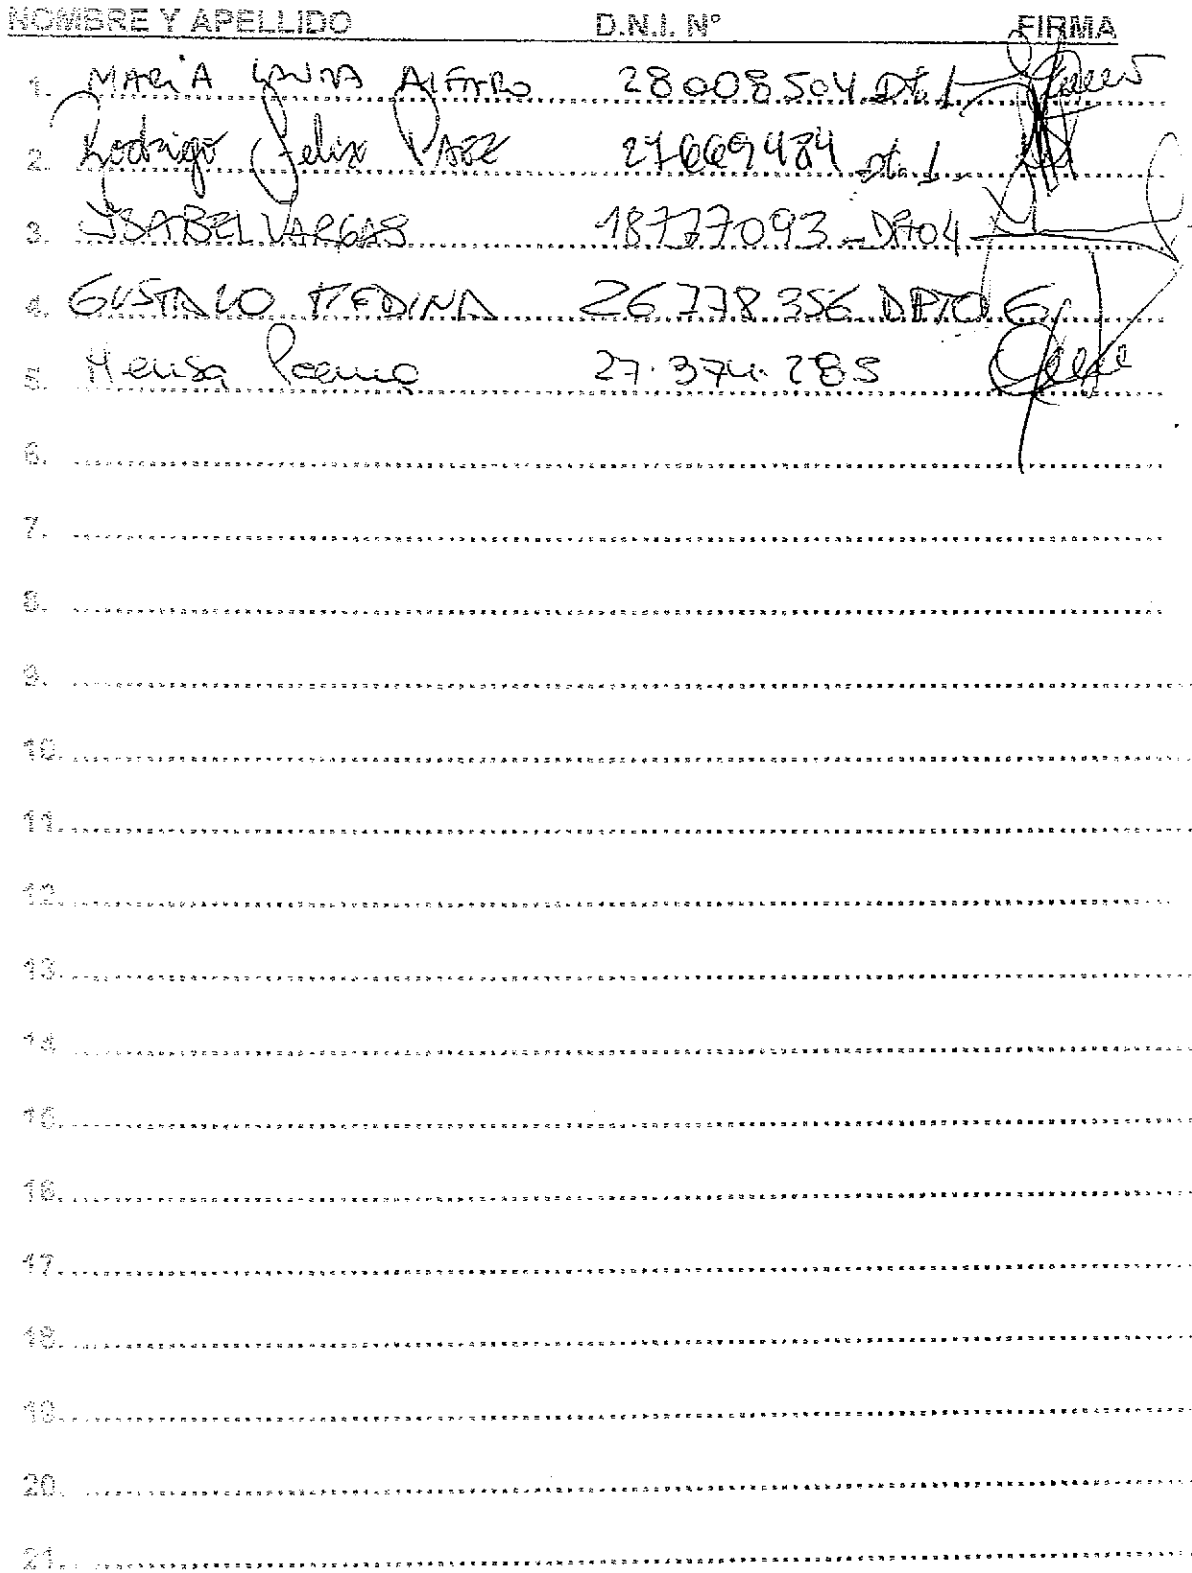 NOMBRE Y APELLIDO D.N.I. Nº FIRMA
1. MARIA LAURA ALFARO 28008504 Dt. 1
2. Rodrigo Felix PAEZ 27669484 dt. 1
3. YSABEL VARGAS 18777093 DPTO4
4. GUSTAVO MEDINA 26.778.356 DPTO 6
5. Melisa 27.374.285
6.
7.
8.
9.
10.
11.
12.
13.
14.
15.
16.
17.
18.
19.
20.
21.